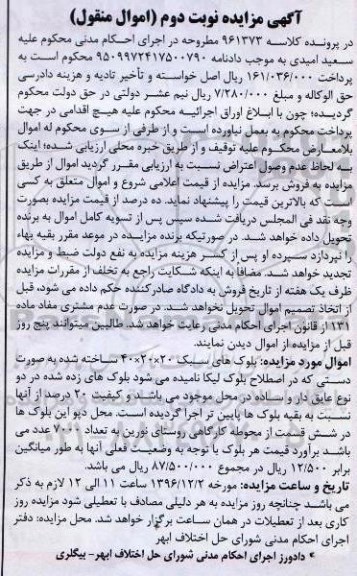 آگهی مزایده نوبت دوم (اموال منقول)
در پرونده کلاسه ۹۶۱۳۷۳ مطروحه در اجرای احکام مدنی محکوم علیه
سعید امیدی به موجب دادنامه ۹۵۰۹۹۷۲۴۱۷۵۰۰۷۹۰ محکوم است به
پرداخت ۱۶۱/۰۳۶/۰۰۰ ریال اصل خواسته و تأخیر تادیه و هزینه دادرسی
حق الوکاله و مبلغ ۷/۲۸۰/۰۰۰ ریال نیم عشر دولتی در حق دولت محکوم
گردیده؛ چون با ابلاغ اوراق اجرائیه محکوم علیه هیچ اقدامی در جهت
پرداخت محکوم به بعمل نیاورده است و از طرفی از سوی محکوم له اموال
بلامعارض محکوم علیه توقیف و از طریق خبره محلی ارزیابی شده؛ اینک
به لحاظ عدم وصول اعتراض نسبت به ارزیابی مقرر گردید اموال از طریق
مزایده به فروش برسد. مزایده از قیمت اعلامی شروع و اموال متعلق به کسی
است که بالاترین قیمت را پیشنهاد نماید. ده درصد از قیمت مزایده بصورت
وجه نقد فی المجلس دریافت شده سپس پس از تسویه کامل اموال به برنده
تحویل داده خواهد شد. در صورتیکه برنده مزایده در موعد مقرر بقیه بهاء
را نپردازد سپرده او پس از کسر هزینه مزایده به نفع دولت ضبط و مزایده
تجدید خواهد شد. مضافا به اینکه شکایت راجع به تخلف از مقررات مزایده
ظرف یک هفته از تاریخ فروش به دادگاه صادرکننده حکم داده می شود، قبل
از اتخاذ تصمیم اموال تحویل نخواهد شد. در صورت عدم مشتری مفاد ماده
۱۳۱ از قانون اجرای احکام مدنی رعایت خواهد شد. طالبین میتوانند پنج روز
قبل از مزایده از اموال دیدن نمایند.
اموال مورد مزایده: بلوک های سبک ۲۰×۲۰×۴۰ ساخته شده به صورت
دستی که در اصطلاح بلوک لیکا نامیده می شود بلوک های زده شده در دو
نوع عایق دار و ساده در محل موجود می باشد و کیفیت ۲۰ درصد از آنها
نسبت به بقیه بلوک ها پایین تر اجرا گردیده است. محل دپو این بلوک ها
در شش قسمت از محوطه کارگاهی روستای نورین به تعداد ۷۰۰۰ عدد می
باشد برآورد قیمت هر بلوک با توجه به وضعیت فعلی آنها به طور میانگین
برابر ۱۲/۵۰۰ ریال در مجموع ۸۷/۵۰۰/۰۰۰ ریال می باشد.
تاریخ و ساعت مزایده: مورخه ۱۳۹۶/۱۲/۲ ساعت ۱۱ الی ۱۲ لازم به ذکر
می باشد چنانچه روز مزایده به هر دلیلی مصادف با تعطیلی شود مزایده روز
کاری بعد از تعطیلات در همان ساعت برگزار خواهد شد. محل مزایده: دفتر
اجرای احکام مدنی شورای حل اختلاف ابهر
* دادورز اجرای احکام مدنی شورای حل اختلاف ابهر- بیگلری